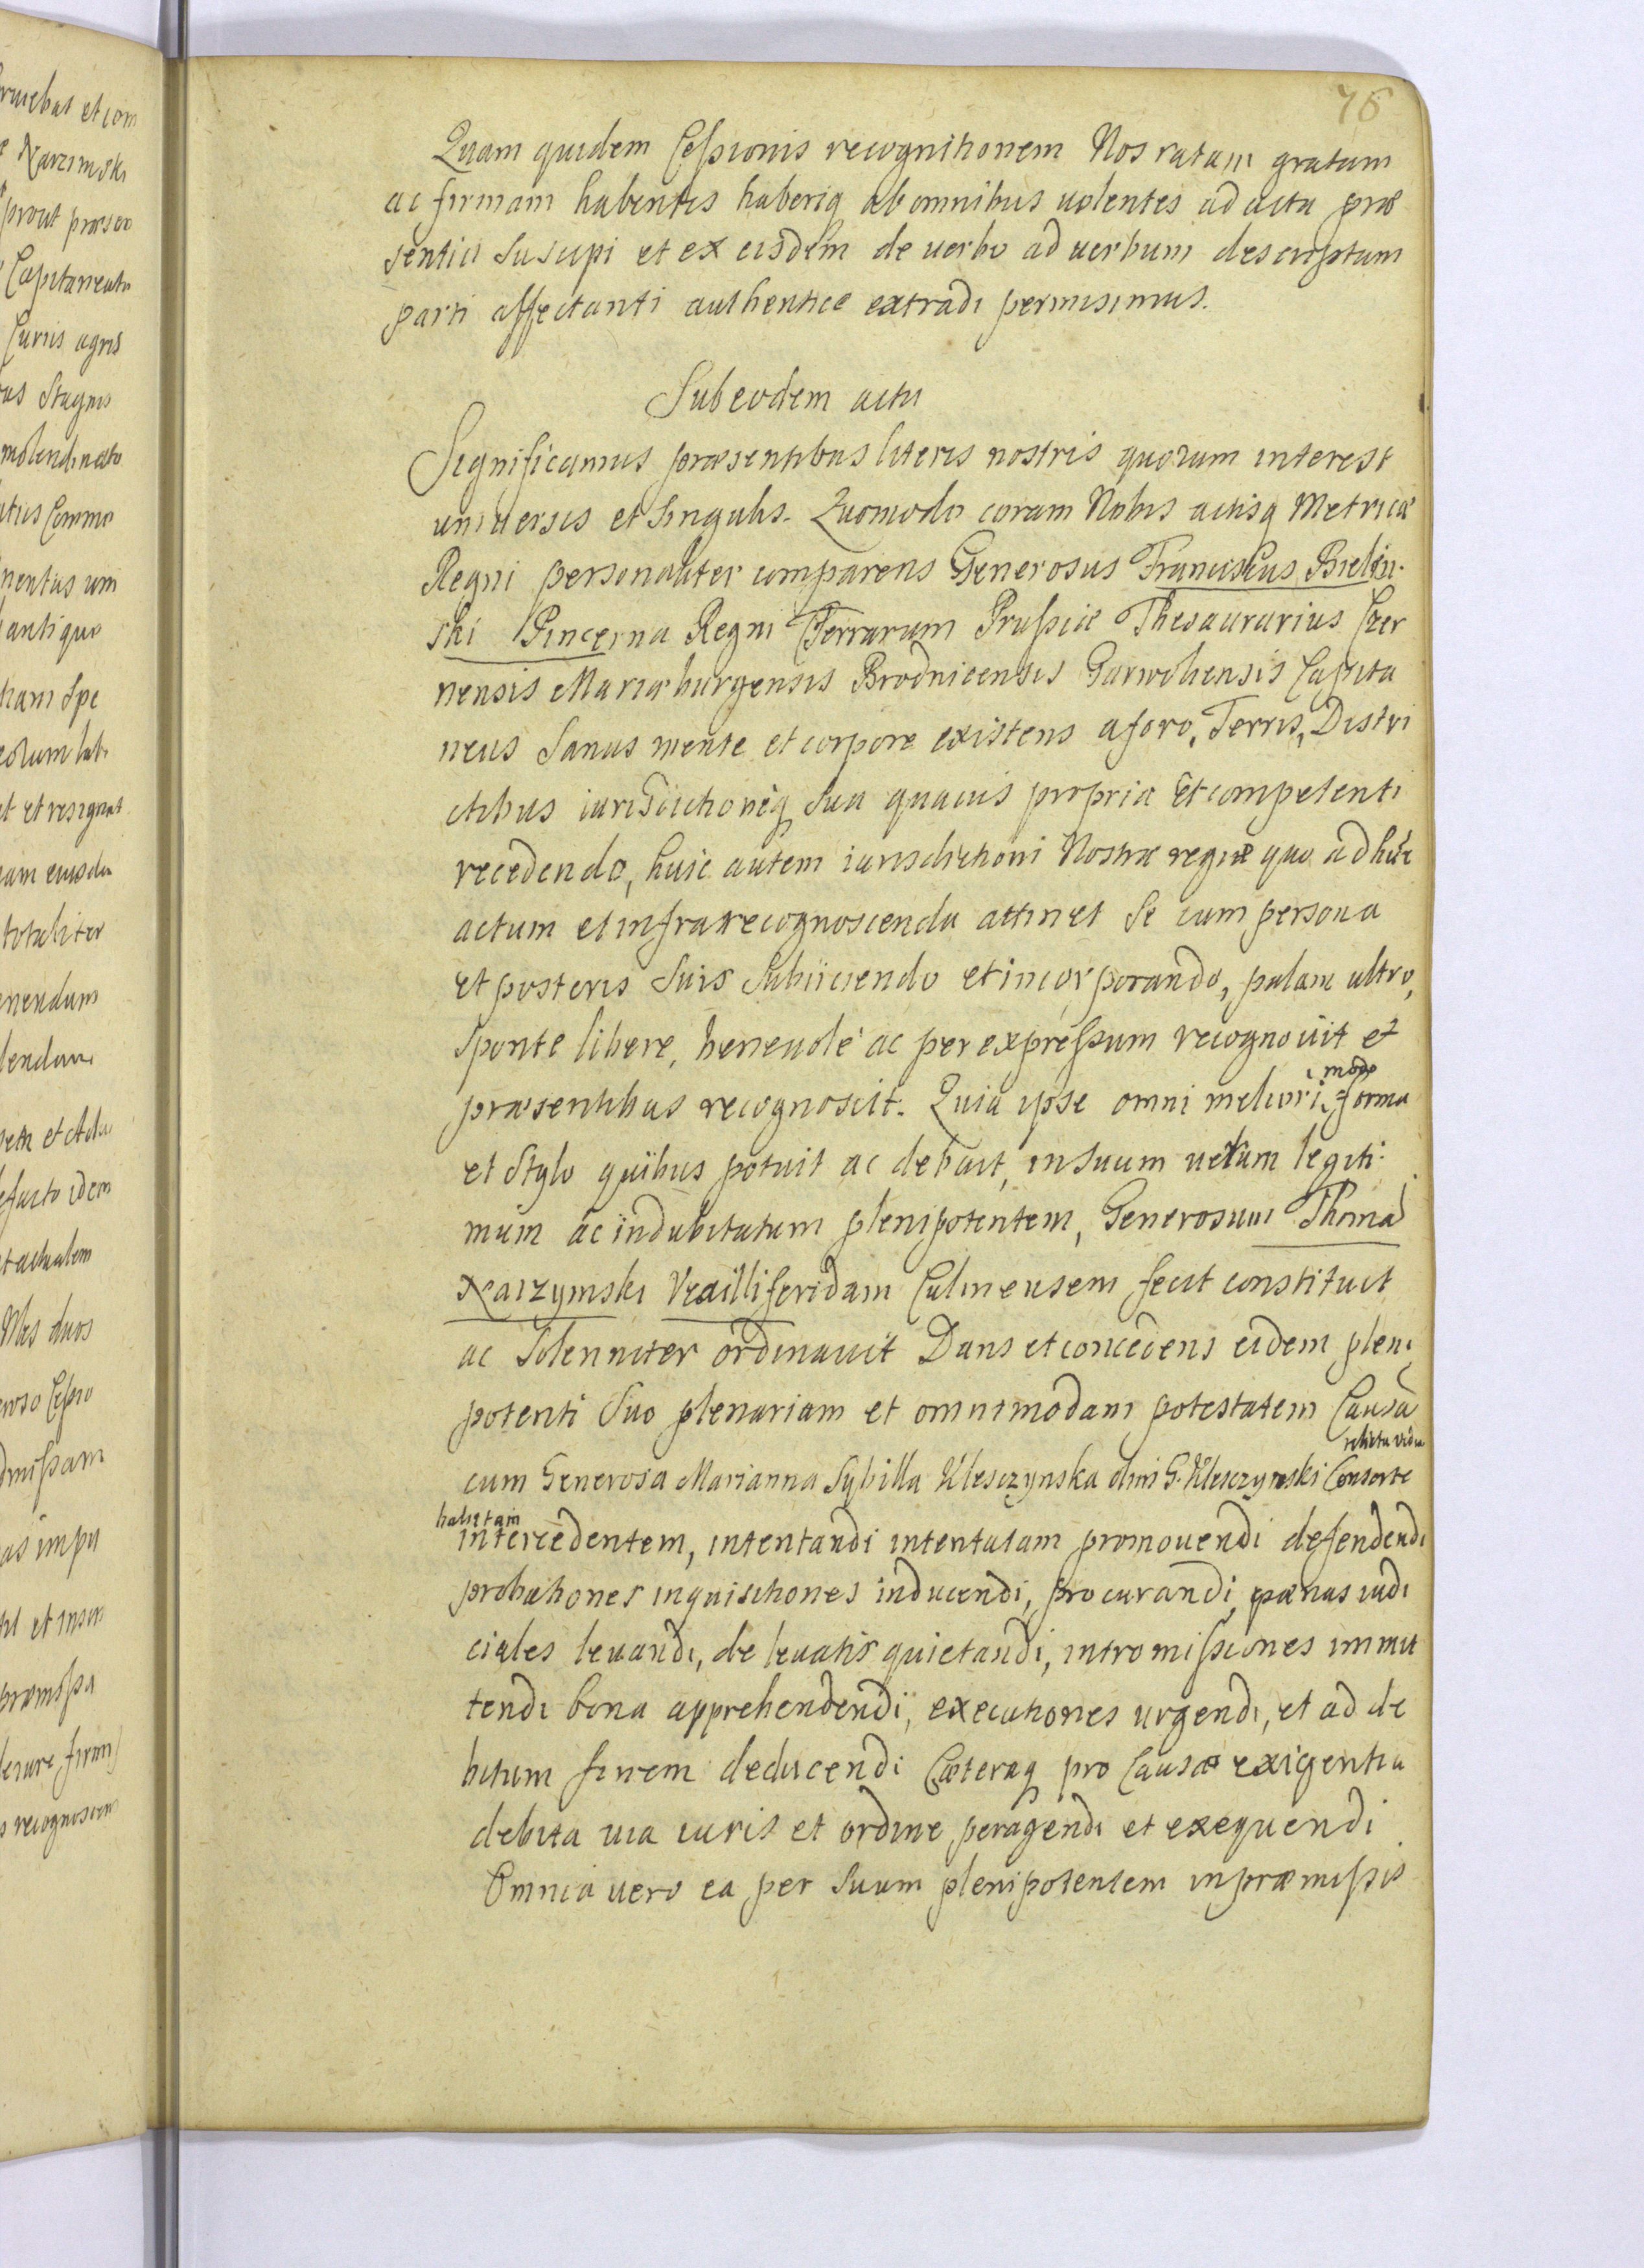 76
Quam quidem Cessionis recognitionem Nos ratam gratam
ac firmam habentes haberiq ab omnibus volentes ad acta præ
sentia Suscipi et ex eisdem de verbo ad verbum descriptum
parti affectanti authentice extradi permisimus.
Sub eodem actu
Significamus præsentibus literis nostris quorum interest
universis et singulis. Quomodo coram Nobis actisq Metricæ
Regni personaliter comparens Generosus Franciscus Bielin-
ski Pincerna Regni Terrarum Prussiæ Thesaurarius Czer
nensis Mariæburgensis Brodnicensis Garwoliensis Capita
neus Sanus mente et corpore existens a foro, Terris, Distri
ctibus iurisdictioneq sua quavis propria et competenti
recedendo, huic autem iurisdictioni Nostræ regiæ quo ad hũc
actum et infra recognoscenda attinet Se cum persona
et posteris Suis Subiiciendo et incorporando, palam ultro,
Sponte libere, benevolè ac per expressum recognovit et
præsentibus recognoscit. Quia ipse omni meliori modo forma
et Stylo quibus potuit ac debuit, in Suum verum legiti-
mum ac indubitatum plenipotentem, Generosum Thomã
Karzymski Vexilliferidam Culmensem fecit constituit
ac Solenniter ordinavit Dans et concedens eidem pleni
potenti Suo plenariam et omnimodam potestatem Causã
relicta vidua
cum Generosa Marianna Sybilla Kłesczynska olim G. Kłesczynski Consorte
habitam
intercedentem, intentandi intentatam promovendi defendendi
probationes inquisitiones inducendi, procurandi, pænas iudi
ciales levandi, de levatis quietandi, intromissiones immit
tendi bona apprehendendi, executiones urgendi, et ad de
bitum finem deducendi Cæteraq pro Causæ exigentia
debita via iuris et ordine peragendi et exequendi
Omnia vero ea per Suum plenipotentem in præmissis